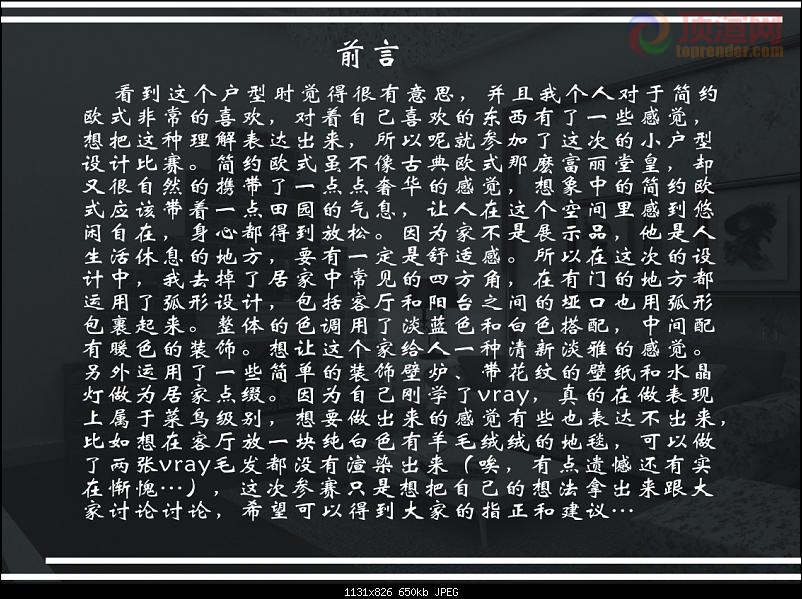 顶渲网
toprender.com
前言
看到这个户型时觉得很有意思，并且我个人对于简约
欧式非常的喜欢，对着自己喜欢的东西有了一些感觉，
想把这种理解表达出来，所以呢就参加了这次的小户型
设计比赛。简约欧式虽不像古典欧式那麽富丽堂皇，却
又很自然的携带了一点点奢华的感觉，想象中的简约欧
式应该带着一点田园的气息，让人在这个空间里感到悠
闲自在，身心都得到放松。因为家不是展示品，他是人
生活休息的地方，要有一定是舒适感。所以在这次的设
计中，我去掉了居家中常见的四方角，在有门的地方都
运用了弧形设计，包括客厅和阳台之间的垭口也用弧形
包裹起来。整体的色调用了淡蓝色和白色搭配，中间配
有暖色的装饰。想让这个家给人一种清新淡雅的感觉。
另外运用了一些简单的装饰壁炉、带花纹的壁纸和水晶
灯做为居家点缀。因为自己刚学了vray，真的在做表现
上属于菜鸟级别，想要做出来的感觉有些也表达不出来，
比如想在客厅放一块纯白色有羊毛绒绒的地毯，可以做
了两张vray毛发都没有渲染出来（唉，有点遗憾还有实
在惭愧…），这次参赛只是想把自己的想法拿出来跟大
家讨论讨论，希望可以得到大家的指正和建议…
1131x826 650kb JPEG